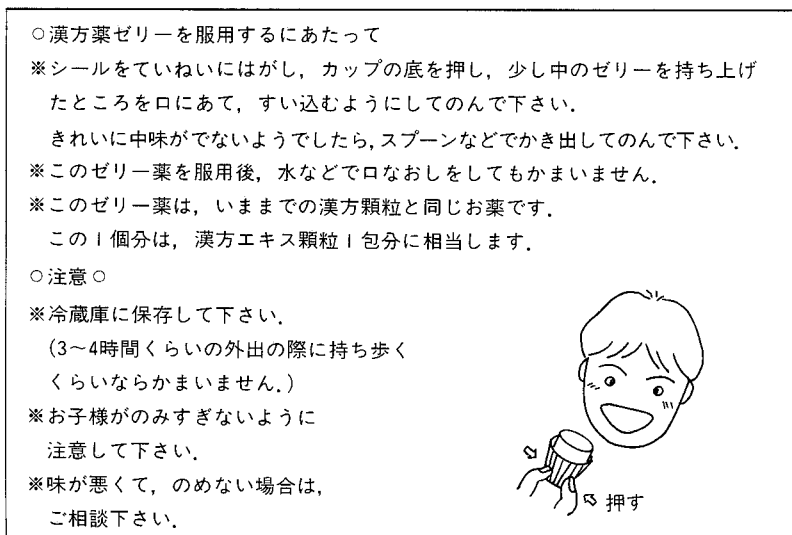 ○漢方薬ゼリーを服用するにあたって
※シールをていねいにはがし，カップの底を押し，少し中のゼリーを持ち上げ
たところを口にあて，すい込むようにしてのんで下さい．
きれいに中味がでないようでしたら，スプーンなどでかき出してのんで下さい．
※このゼリー薬を服用後，水などで口なおしをしてもかまいません．
※このゼリー薬は，いままでの漢方顆粒と同じお薬です．
この1個分は，漢方エキス顆粒1包分に相当します．
○注意○
※冷蔵庫に保存して下さい．
(3～4時間くらいの外出の際に持ち歩く
くらいならかまいません．)
※お子様がのみすぎないように
注意して下さい．
※味が悪くて，のめない場合は，
ご相談下さい．
押す